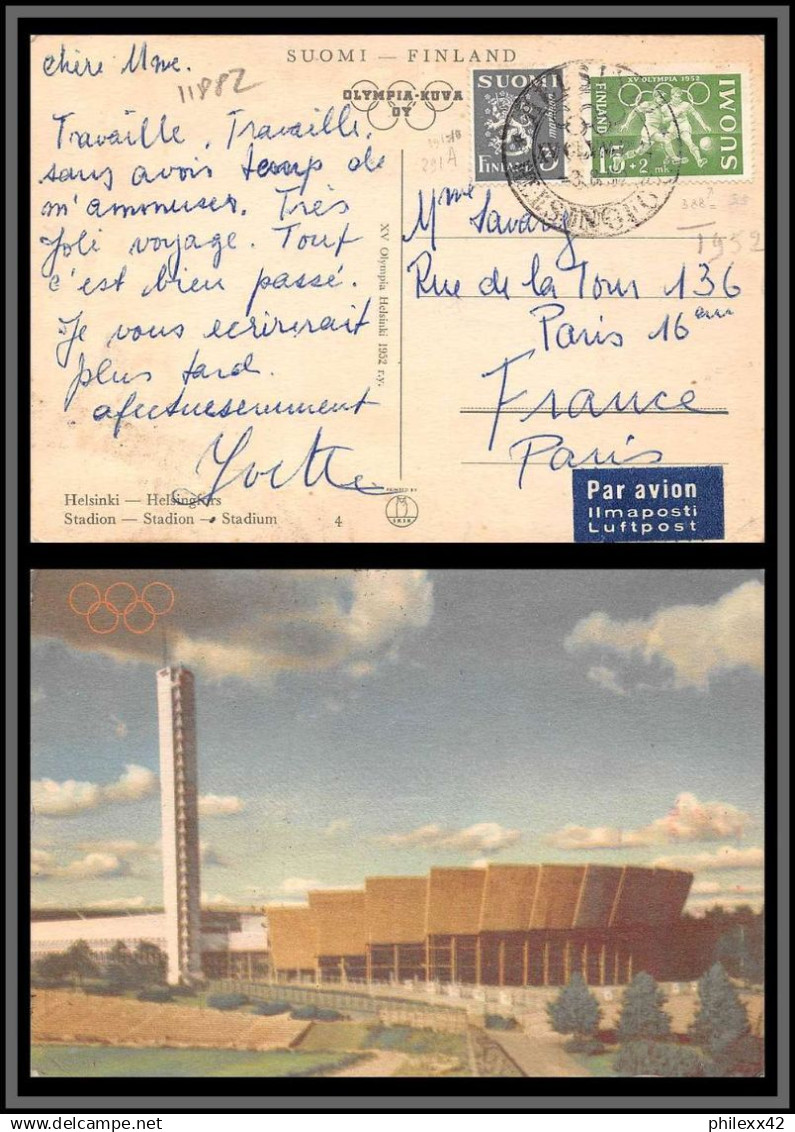 SUOMI — FINLAND
OLYMPIA-KUVA
OY
chère Mme.
11882
Travaille, Travaille,
sans avoir temp de
m'ammuser. Très
Joli voyage. Tout
c'est bien passé.
Je vous ecrirerait
plus tard.
afectueusement
Yvette
XV Olympia Helsinki 1952 r.y.
SUOMI
markkaa
FINLAND
XV OLYMPIA 1952
FINLAND
SUOMI
15
+2 mk
HELSINGFORS
291A
1952
Mme Savary
Rue de la Tour 136
Paris 16 em
France
Paris
Par avion
Ilmaposti
Luftpost
Helsinki — Helsingfors
Stadion — Stadion — Stadium
4
PRINTED BY
philexx42
philexx42